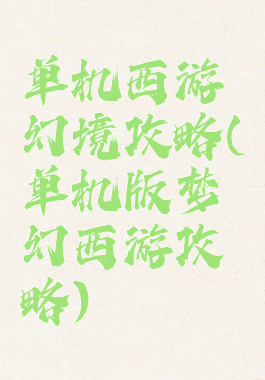 单机西游
幻境攻略(
单机版梦
幻西游攻
略)